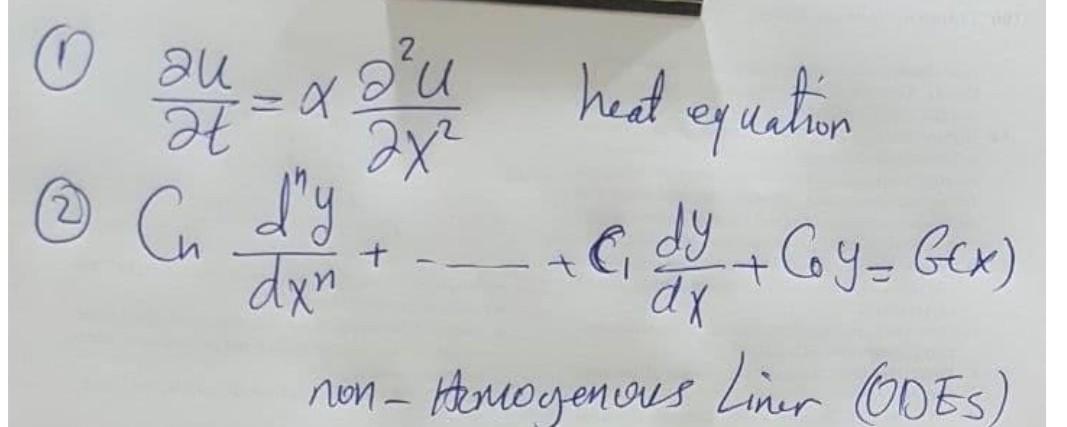 ① ∂u/∂t = α ∂²u/∂x² heat equation
② Cn dⁿy/dxⁿ + - —— + C₁ dy/dx + C₀y = G(x)
non - Homogenous Liner (ODEs)